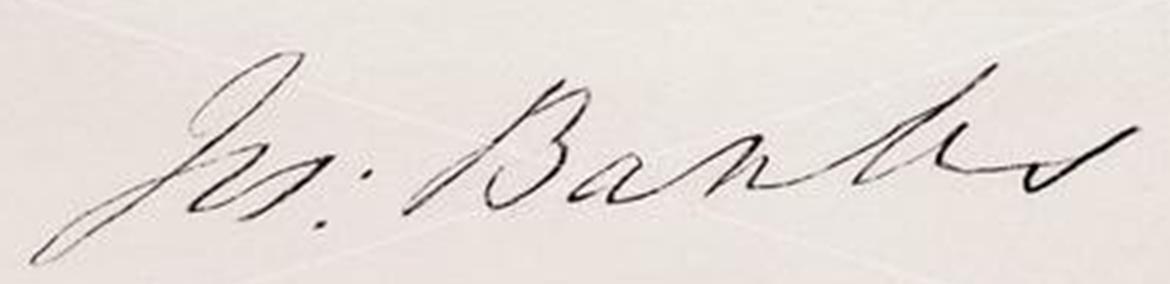 Jos: Banks